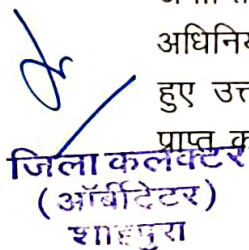 अधिनिय
हुए उत्त
प्राप्त क
जिला कलेक्टर
(ऑर्बीट्रेटर)
शाहपुरा